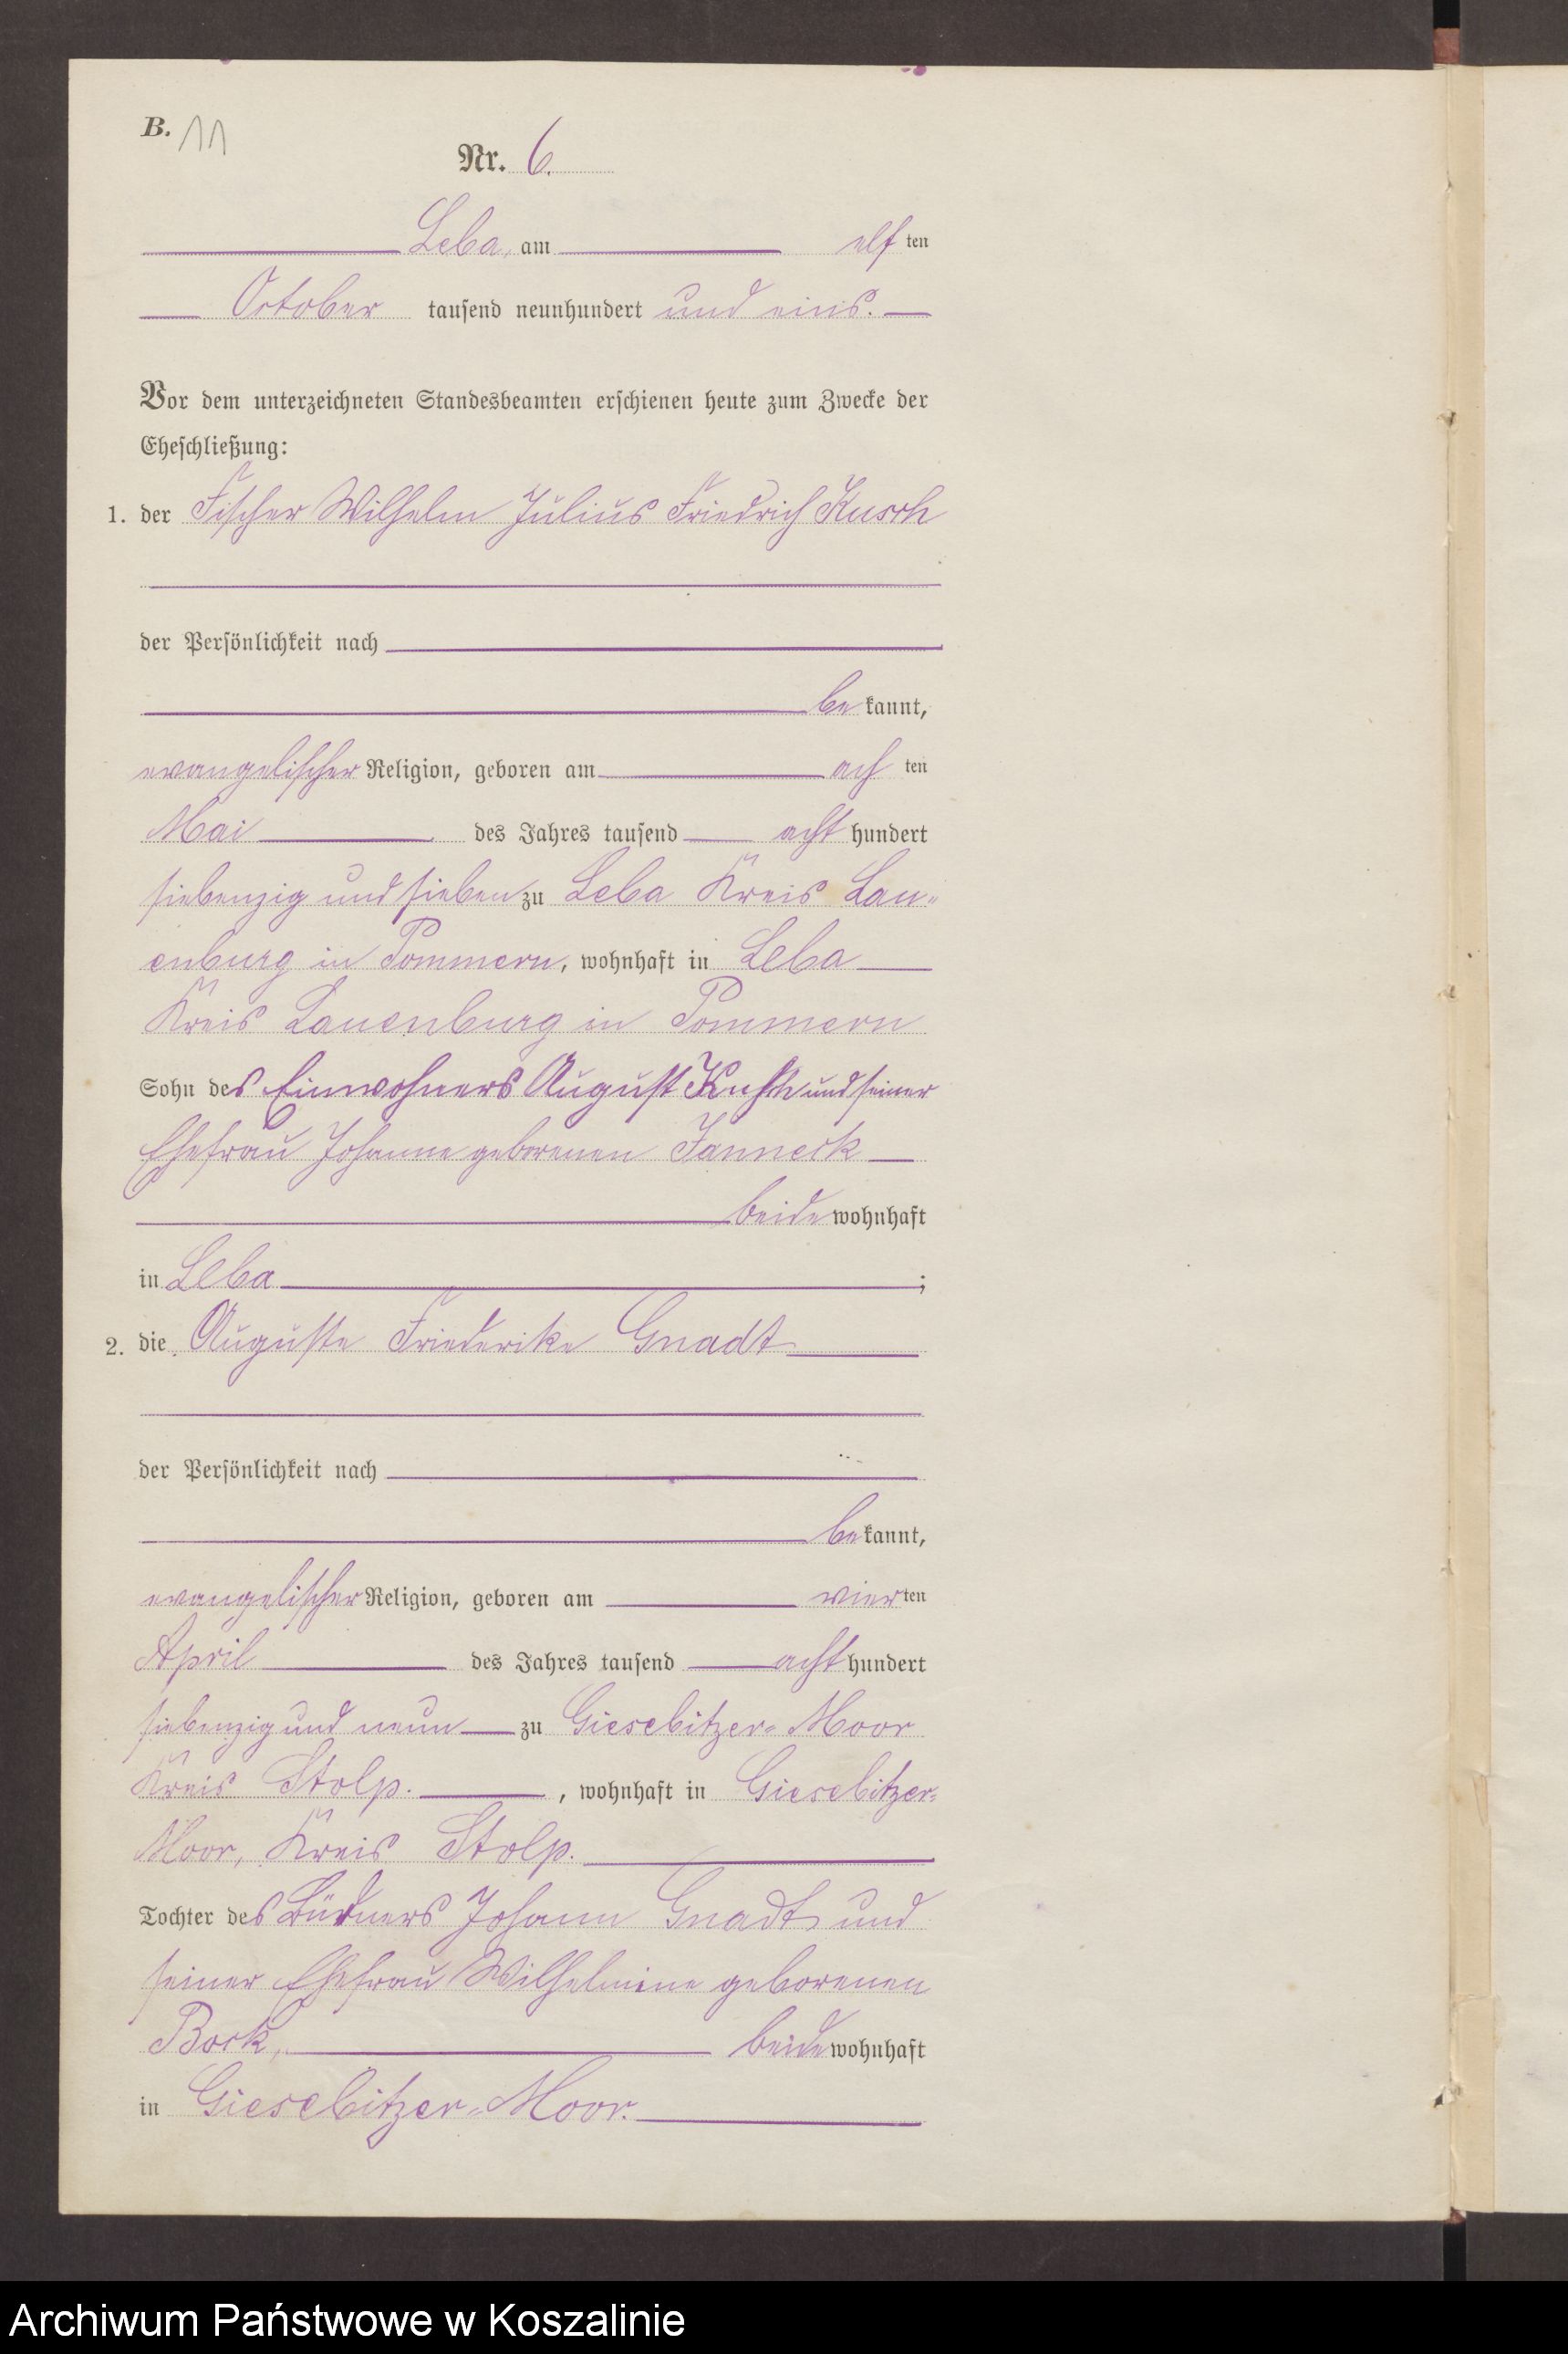 B. 11
Nr. 6.
Leba, am elf ten
October tausend neunhundert und eins.
Vor dem unterzeichneten Standesbeamten erschienen heute zum Zwecke der
Eheschließung:
1. der Fischer Wilhelm Julius Friedrich Kusch
der Persönlichkeit nach
be kannt,
evangelischer Religion, geboren am ach ten
Mai des Jahres tausend acht hundert
siebenzig und sieben zu Leba Kreis Lau-
enburg in Pommern, wohnhaft in Leba
Kreis Lauenburg in Pommern
Sohn des Einwohners August Kusch und seiner
Ehefrau Johanne geborenen Janneck
beide wohnhaft
in Leba ;
2. die Auguste Friederike Gnadt
der Persönlichkeit nach
be kannt,
evangelischer Religion, geboren am vier ten
April des Jahres tausend acht hundert
siebenzig und neun zu Giesebitzer-Moor
Kreis Stolp. , wohnhaft in Giesebitzer-
Moor, Kreis Stolp.
Tochter des Büdners Johann Gnadt und
seiner Ehefrau Wilhelmine geborenen
Bock, beide wohnhaft
in Giesebitzer-Moor.
Archiwum Państwowe w Koszalinie